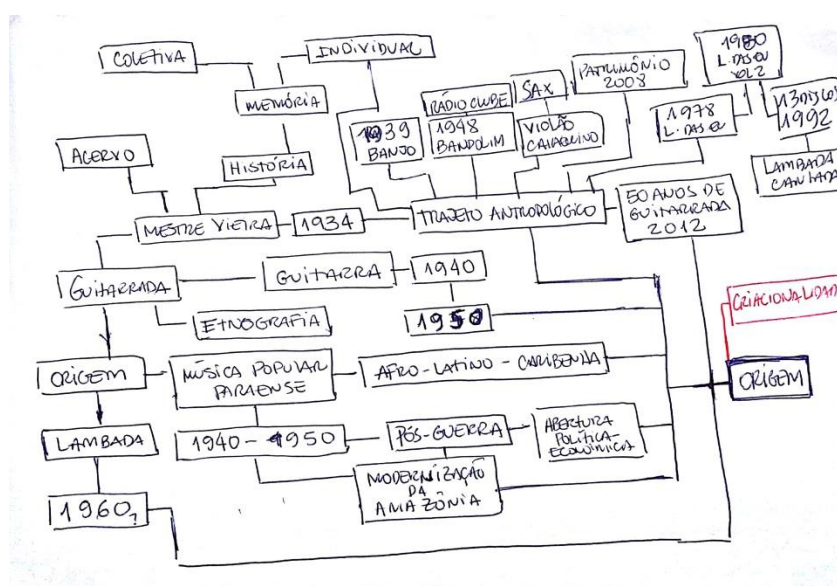 COLETIVA
INDIVIDUAL
MEMÓRIA
RÁDIO CLUBE
SAX
PATRIMÔNIO
2008
1980
VOL 2
13 DISCOS
1992
ACERVO
HISTÓRIA
1939
BANJO
1948
BANDOLIM
VIOLÃO
1978
LAMBADA
CANTADA
MESTRE VIEIRA
1934
TRAJETO ANTROPOLÓGICO
50 ANOS DE
GUITARRADA
2012
GUITARRADA
GUITARRA
1940
ETNOGRAFIA
1950
CRIACIONALIDADE
ORIGEM
MÚSICA POPULAR
PARAENSE
AFRO-LATINO-CARIBENHA
ORIGEM
LAMBADA
1940-1950
PÓS-GUERRA
ABERTURA
POLÍTICA-
ECONÔMICA
MODERNIZAÇÃO
DA
AMAZÔNIA
1960?